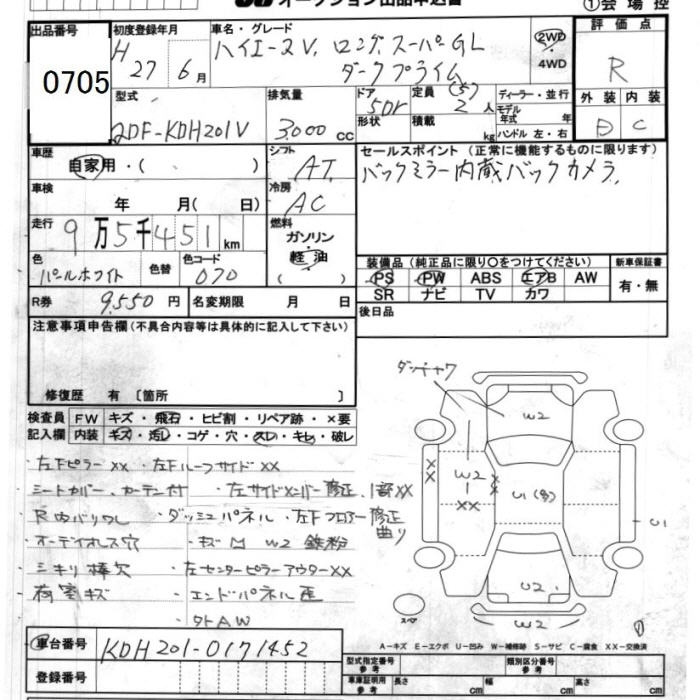 オークション出品申込書
①会場控
出品番号
0705
初度登録年月
H 27 6月
車名・グレード
ハイエースV. ロング. スーパーGL
ダークプライム
2WD
・
4WD
評価点
R
外装 内装
D C
型式
QDF-KDH201V
排気量
3.000 cc
ドア 5Dr
形状
定員 (5) 2人
積載 kg
ディーラー・並行
モデル年式 年
ハンドル 左・右
車歴
自家用・( )
シフト AT
セールスポイント (正常に機能するものに限ります)
バックミラー内蔵バックカメラ.
車検
年 月( 日)
冷房 AC
走行
9万5千451km
燃料
ガソリン
・
軽油
( )
色
パールホワイト
色替
色コード
070
装備品 (純正品に限り○をつけてください)
新車保証書
PS PW ABS エアB AW
有・無
SR ナビ TV カワ
R券 9,550円
名変期限 月 日
後日品
注意事項申告欄 (不具合内容等は具体的に記入して下さい)
修復歴 有 〔箇所 〕
検査員 FW キズ・飛石・ヒビ割・リペア跡・×要
記入欄 内装 キズ・汚レ・コゲ・穴・スレ・キレ・破レ
・左Fピラー××・左Fルーフサイド××
シートカバー、カーテン付・左サイドメンバー修正、1部××
R内バリワレ・ダッシュパネル・左Fフロアー修正
曲り
オーディオレス穴・キズ凹 W2 鉄粉
シキリ棒欠・左センターピラーアウター××
荷室キズ・エンドパネル歪
・外AW
ダッシュワレ
W2
W2
××
××
××
U1(多)
U1
U2
W2
スペ
A－キズ E－エクボ U－凹み W－補修跡 S－サビ C－腐食 XX－交換済
車台番号
KDH201-0171452
登録番号
型式指定番号
参考
類別区分番号
参考
車庫証明用
参考
長さ cm
幅 cm
高さ cm